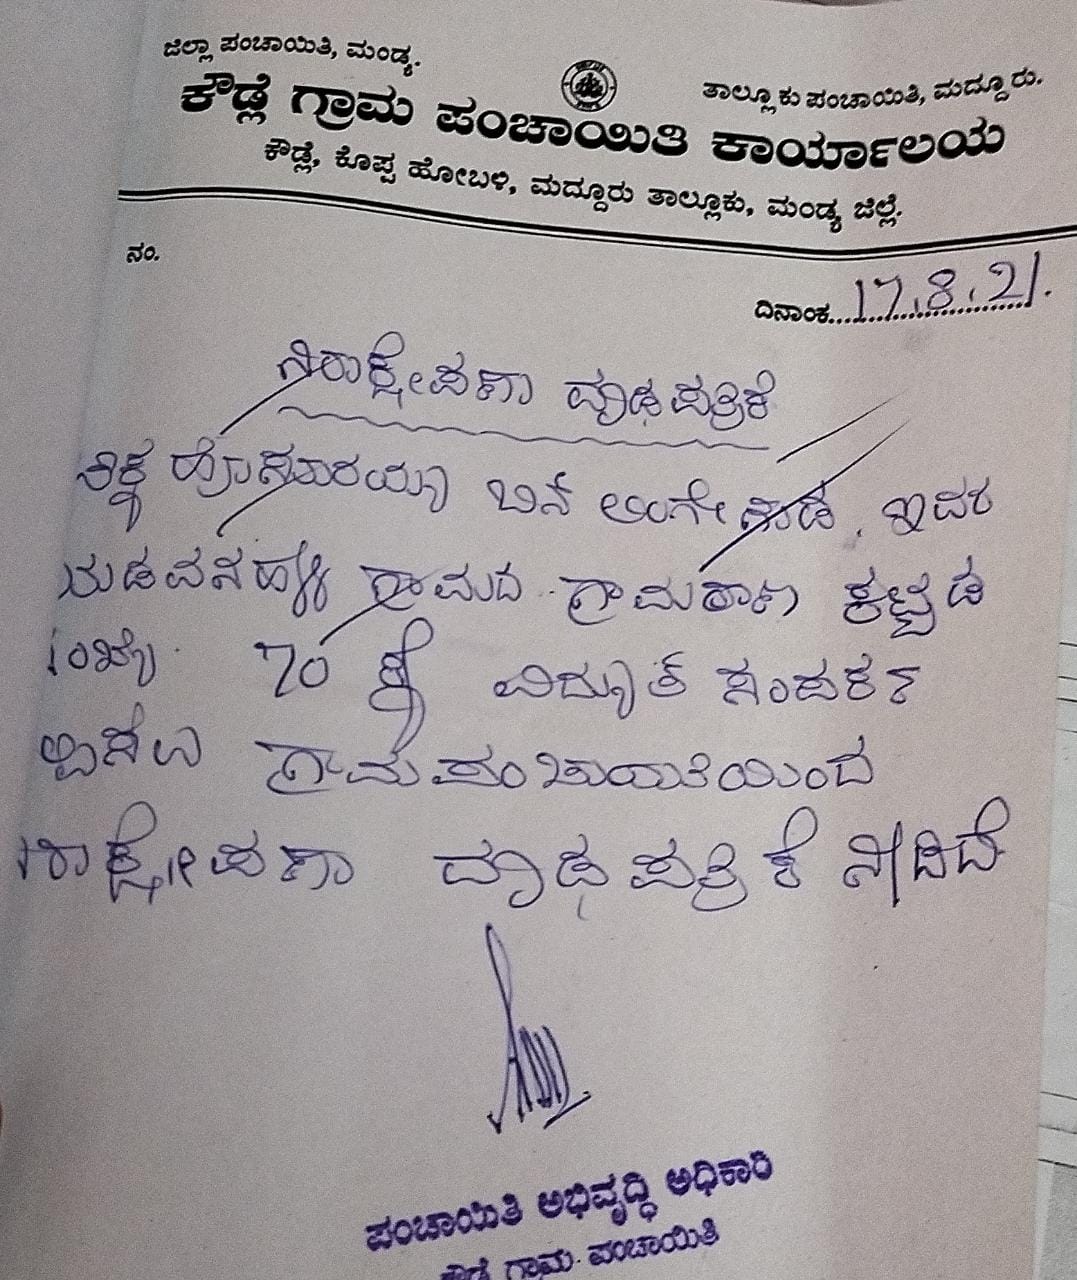 ಜಿಲ್ಲಾ ಪಂಚಾಯಿತಿ, ಮಂಡ್ಯ.
ತಾಲ್ಲೂಕು ಪಂಚಾಯಿತಿ, ಮದ್ದೂರು.
ಕೌಡ್ಲೆ ಗ್ರಾಮ ಪಂಚಾಯಿತಿ ಕಾರ್ಯಾಲಯ
ಕೌಡ್ಲೆ, ಕೊಪ್ಪ ಹೋಬಳಿ, ಮದ್ದೂರು ತಾಲ್ಲೂಕು, ಮಂಡ್ಯ ಜಿಲ್ಲೆ.
ನಂ.
ದಿನಾಂಕ...17.8.21.
ನಿರಾಕ್ಷೇಪಣಾ ಪತ್ರಿಕೆ
ಬಿನ್ ಇವರ
ಯಡವನಹಳ್ಳಿ ಗ್ರಾಮದ ಗ್ರಾಮಠಾಣ ಕಟ್ಟಡ
70 ಕ್ಕೆ ವಿದ್ಯುತ್ ಸಂಪರ್ಕ
ಗ್ರಾಮ ಪಂಚಾಯಿತಿಯಿಂದ
ರಾಕ್ಷೇಪಣಾ ಪತ್ರಿಕೆ ನೀಡಿದೆ
ಪಂಚಾಯಿತಿ ಅಭಿವೃದ್ಧಿ ಅಧಿಕಾರಿ
ಕೌಡ್ಲೆ ಗ್ರಾಮ ಪಂಚಾಯಿತಿ